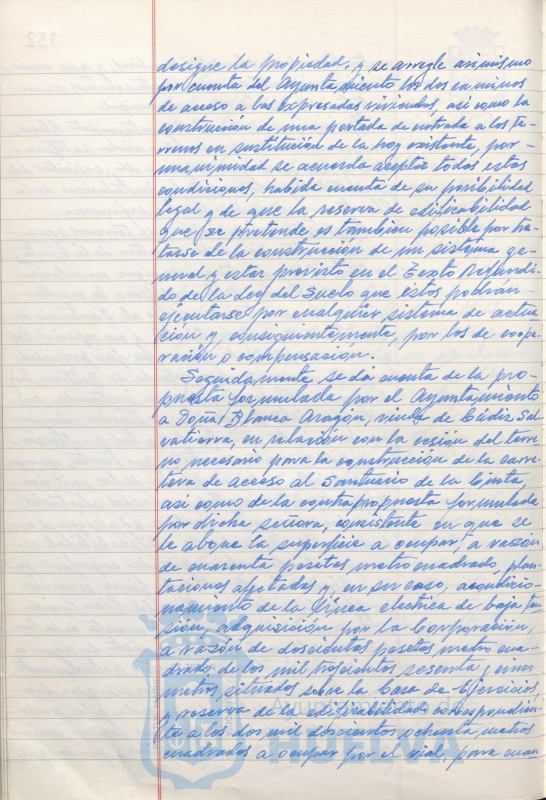 designe la propiedad, y se arregle asimismo
por cuenta del Ayuntamiento los dos caminos
de acceso a las expresadas viviendas, así como la
construcción de una portada de entrada a los te-
rrenos en sustitución de la hoy existente, por
unanimidad se acuerda aceptar todas estas
condiciones, habida cuenta de su posibilidad
legal y de que la reserva de edificabilidad
que se pretende es tambien posible por tra-
tarse de la construcción de un sistema ge-
neral y estar previsto en el Texto Refundi-
do de la Ley del Suelo que éstos podrán
ejecutarse por cualquier sistema de actua-
ción y, consiguientemente, por los de coope-
ración o compensación.
Seguidamente se dá cuenta de la pro-
puesta formulada por el Ayuntamiento
a Doña Blanca Aragón, viuda de Cádiz Sal-
vatierra, en relación con la cesión del terre-
no necesario para la construcción de la carre-
tera de acceso al Santuario de la Cinta,
así como de la contrapropuesta formulada
por dicha señora, consistente en que se
le abone la superficie a ocupar, a razón
de cuarenta pesetas metro cuadrado, plan-
taciones afectadas y, en su caso, acondicio-
namiento de la línea electrica de baja ten-
sión, adquisición por la Corporación,
a razón de doscientas pesetas metro cua-
drado de los mil trescientos sesenta y cinco
metros situados sobre la Casa de Ejercicios,
y reserva de la edificabilidad correspondien-
te a los dos mil doscientos ochenta metros
cuadrados a ocupar por el vial, para cuan-
152
Ayuntamiento de
HUELVA